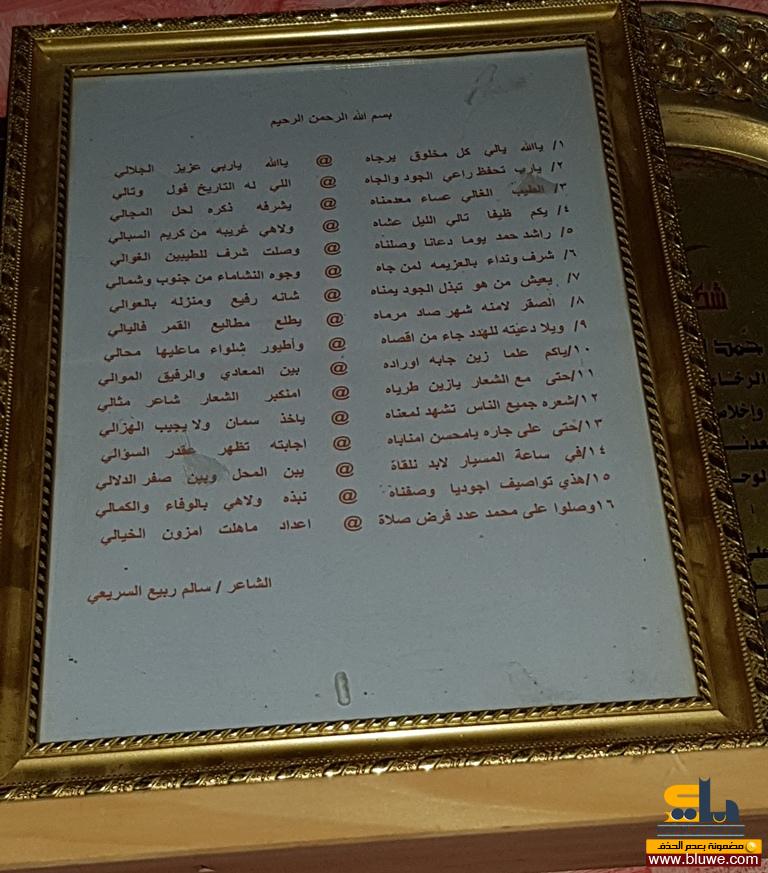 بسم الله الرحمن الرحيم
١/ ياالله يالي كل مخلوق يرجاه @ ياالله ياربي عزيز الجلالي
٢/ يارب تحفظ راعي الجود والجاه @ اللي له التاريخ قول وتالي
٣/ الطيب الغالي عساء معدمناه @ يشرفه ذكره لحل المجالي
٤/ يكم ظيفا تالي الليل عشاه @ ولاهي غريبه من كريم السبالي
٥/ راشد حمد يوما دعانا وصلناه @ وصلت شرف للطيبين الغوالي
٦/ شرف ونداء بالعزيمه لمن جاه @ وجوه النشاماء من جنوب وشمالي
٧/ يعيش من هو تبذل الجود يمناه @ شانه رفيع ومنزله بالعوالي
٨/ الصقر لامنه شهر صاد مرماه @ يطلع مطاليع القمر فاليالي
٩/ ويلا دعيته للهدد جاء من اقصاه @ وأطيور شلواء ماعليها محالي
١٠/ياكم علما زين جابه اوراده @ بين المعادي والرفيق الموالي
١١/حتى مع الشعار يازين طرياه @ امنكبر الشعار شاعر مثالي
١٢/شعره جميع الناس تشهد لمعناه @ ياخذ سمان ولا يجيب الهزالي
١٣/حتى على جاره يامحسن امناباه @ اجابته تظهر عقدر السؤالي
١٤/في ساعة المسيار لابد نلقاة @ يبن المحل وبين صفر الدلالي
١٥/هذي تواصيف اجوديا وصفناه @ نبذه ولاهي بالوفاء والكمالي
١٦وصلوا على محمد عدد فرض صلاة @ اعداد ماهلت امزون الخيالي
الشاعر / سالم ربيع السريعي
شك
حمد
الرخاء
وإخلاص
مضمونة بعدم الحذف
www.bluwe.com